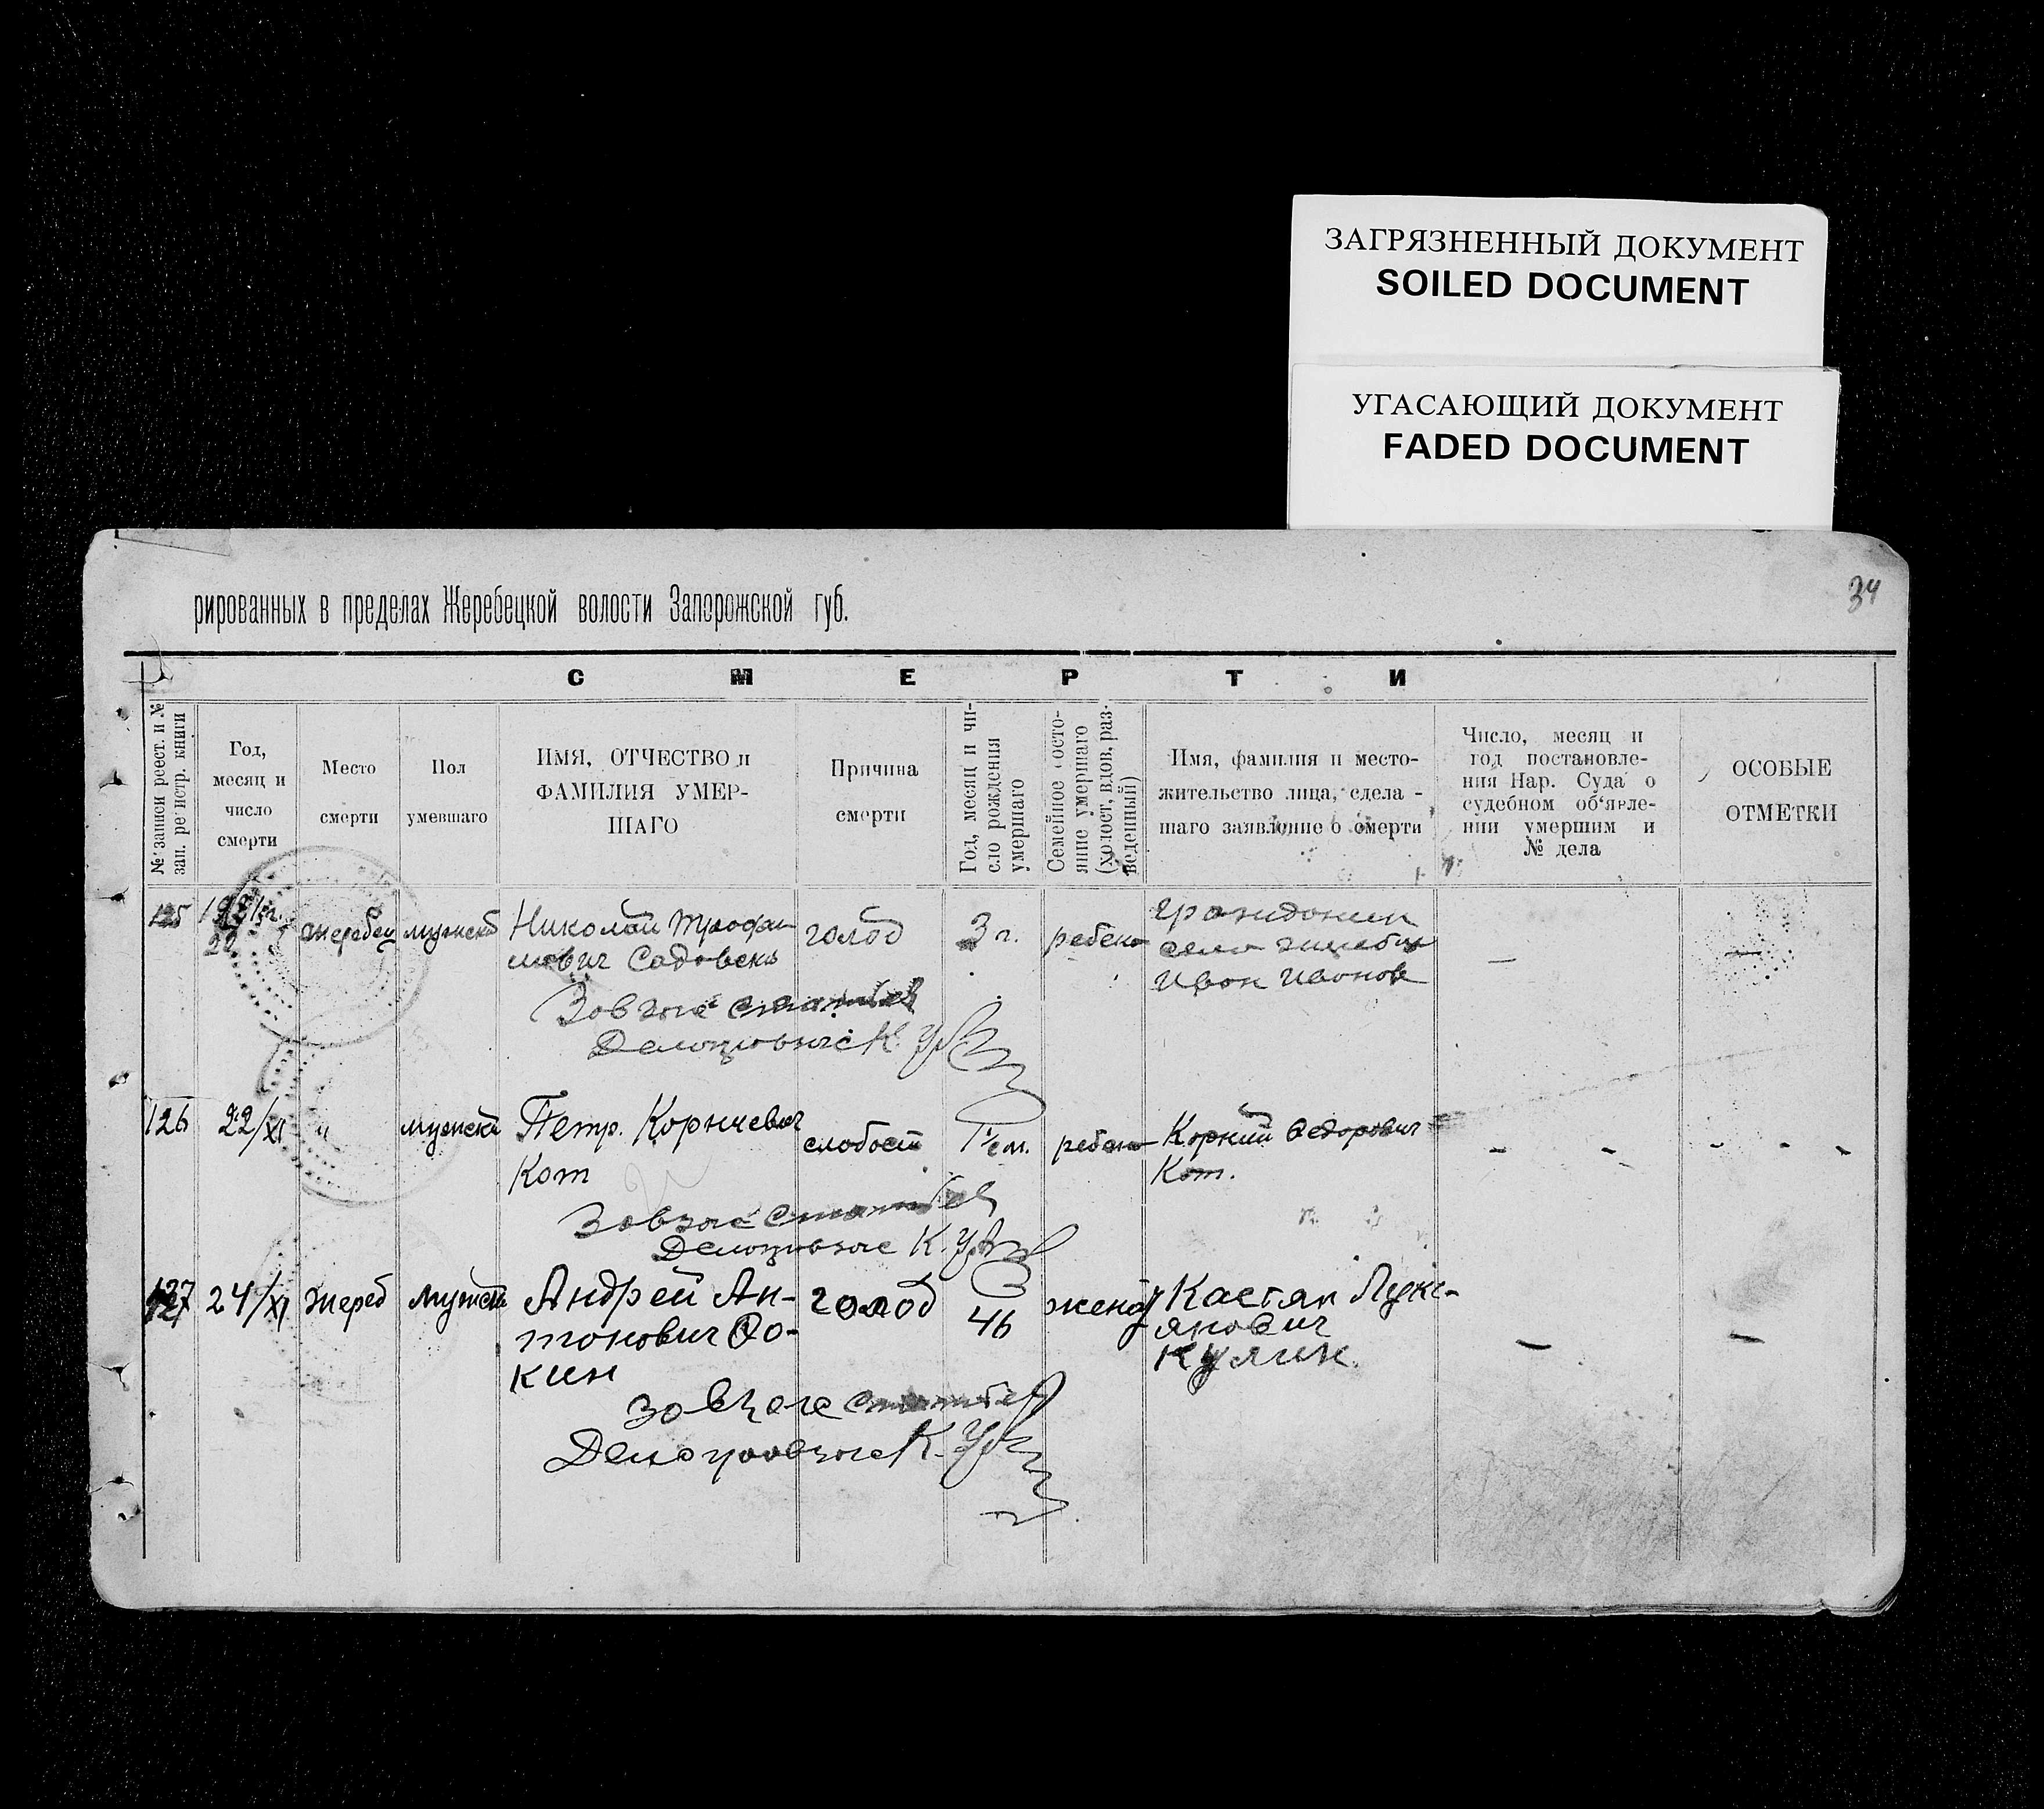 ЗАГРЯЗНЕННЫЙ ДОКУМЕНТ
SOILED DOCUMENT
УГАСАЮЩИЙ ДОКУМЕНТ
FADED DOCUMENT
34
рированных в пределах Жеребецкой волости Запорожской губ.
СМЕРТИ
№ записи реест. и №
зап. регистр. книги
Год,
месяц и
число
смерти
Место
смерти
Пол
умевшаго
ИМЯ, ОТЧЕСТВО и
ФАМИЛИЯ УМЕР-
ШАГО
Причина
смерти
Год, месяц и чи-
сло рождения
умершаго
Семейное состо-
яние умершаго
(холост, вдов, раз-
веденный)
Имя, фамилия и место-
жительство лица, сдела-
шаго заявление о смерти
Число, месяц и
год постановле-
ния Нар. Суда о
судебном об'явле-
нии умершим и
№ дела
ОСОБЫЕ
ОТМЕТКИ
125
22
жеребец
Николай Трофи-
мович Садовски
голод
3 г.
ребено
село
Иван Иванов
К.
126
22/XI
"
Петр. Корниевич
Кот
слабость
ребено
Корний Федорович
Кот.
К.
127
24/XI
жереб
Андрей Ан-
тонович Фо-
кин
голод
46
женат
Кастян Лукс-
янович
Кулик.
К.